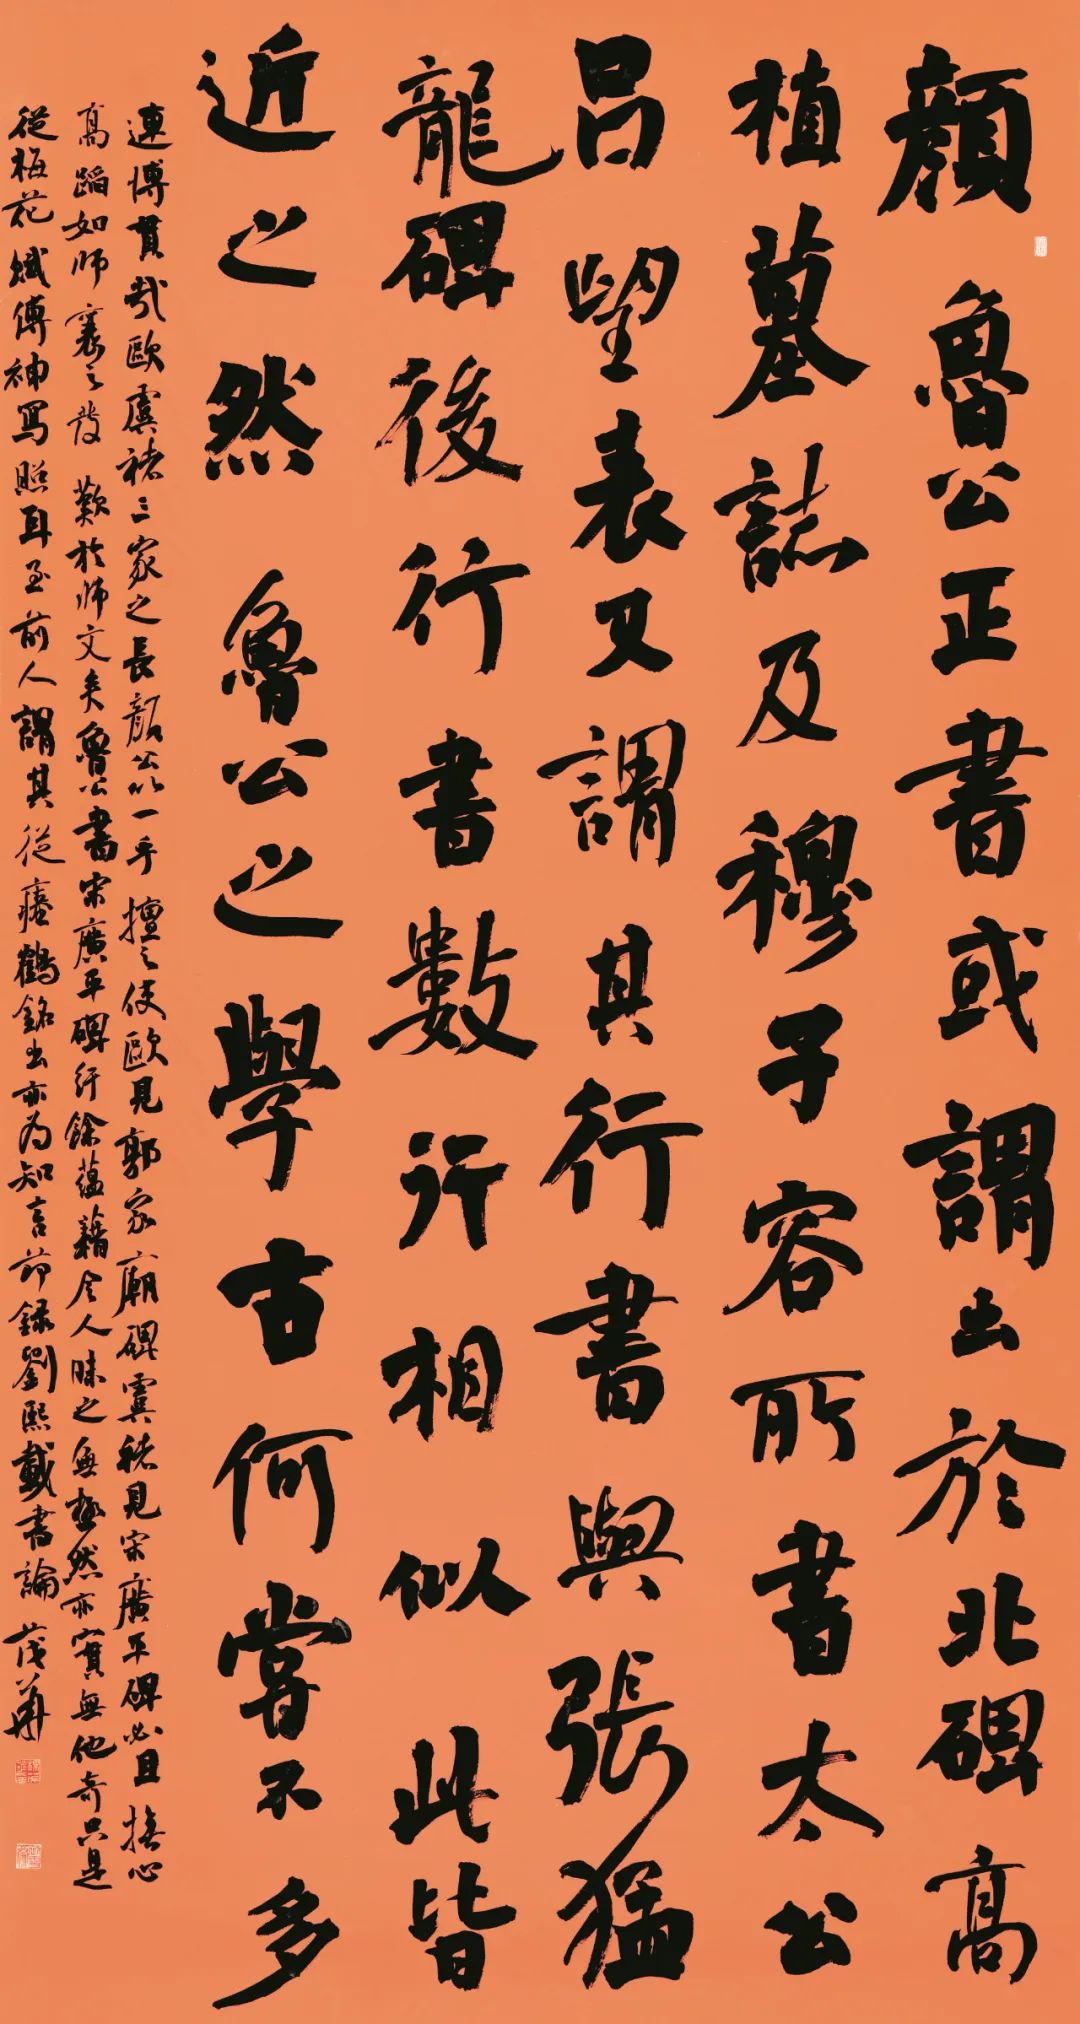 顏魯公正書或謂出於北碑高
植墓誌及穆子容所書太公
呂望表又謂其行書與張猛
龍碑後行書數行相似此皆
近之然魯公之學古何嘗不多
連博貫哉歐虞褚三家之長顏公以一手擅之使歐見郭家廟碑虞褚見宋廣平碑必且撫心
高蹈如師襄之發歎於師文矣魯公書宋廣平碑紆餘蘊藉令人味之無極然亦實無他奇只是
從梅花賦傳神寫照耳至前人謂其從瘞鶴銘出亦為知言節錄劉熙載書論茂